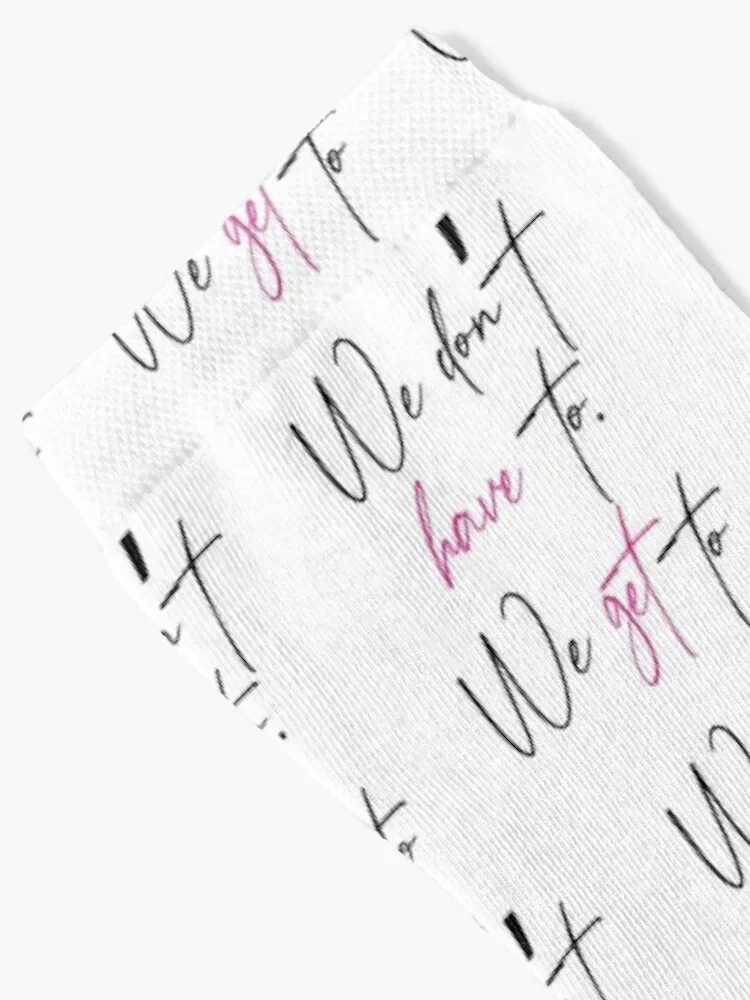 We get To
We don't
have to.
We get to
W
't
't
to